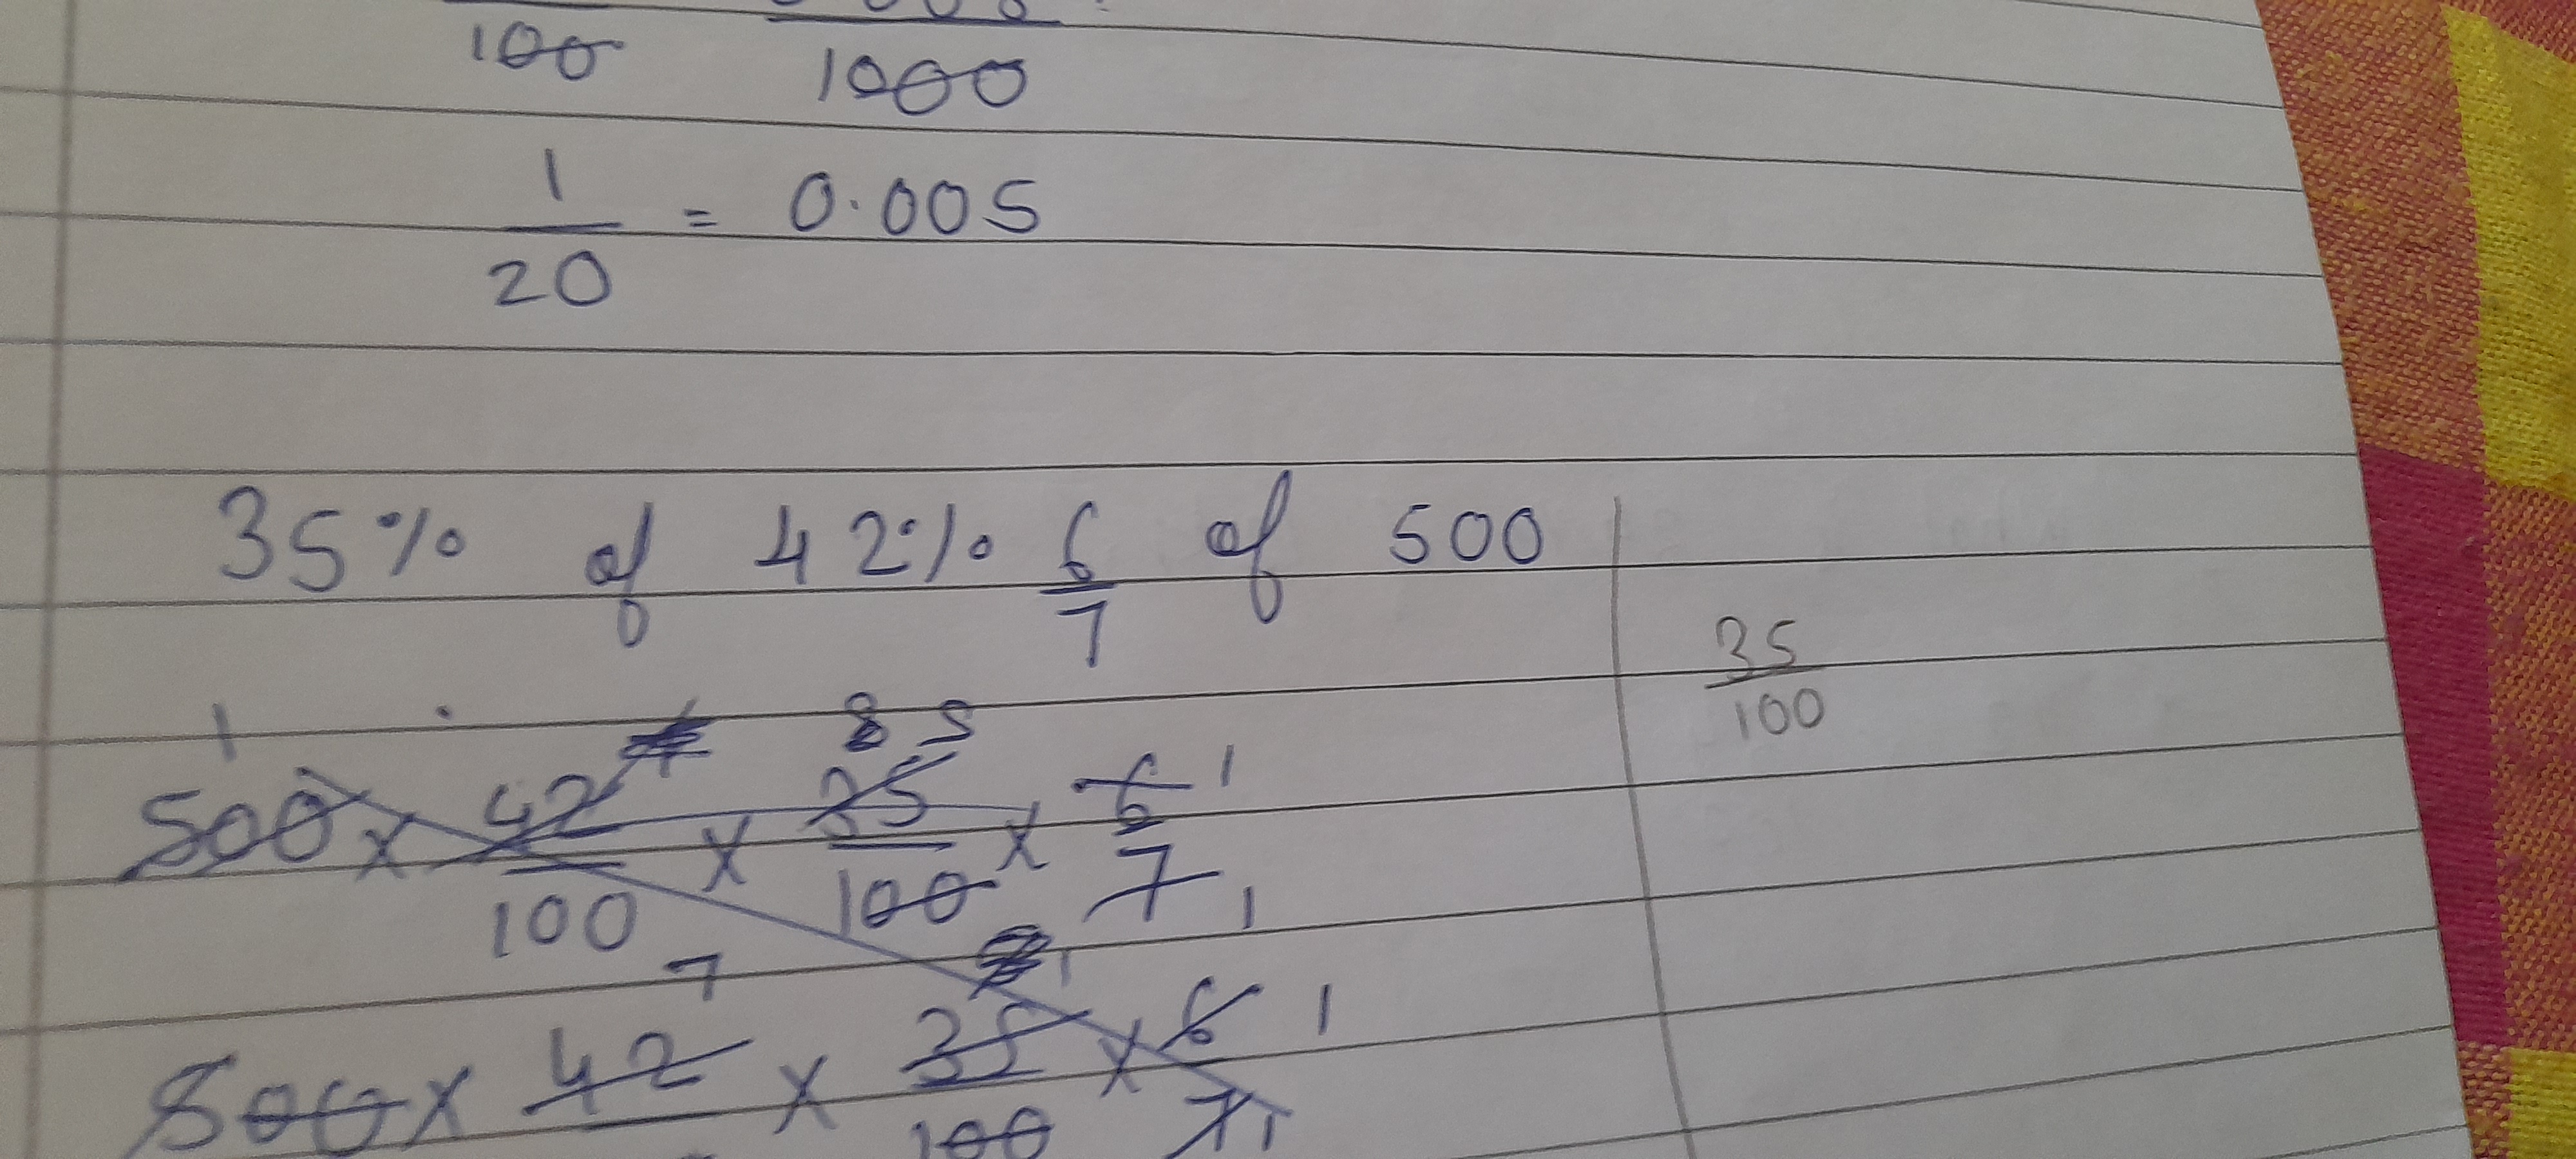 100 1000
1/20 = 0.005
35% of 42% 6/7 of 500
35/100
1 8 5
500 × 42/100 × 35/100 × 6/7 1 1
7 1
500 × 42 × 35/100 × 6/7 1 1